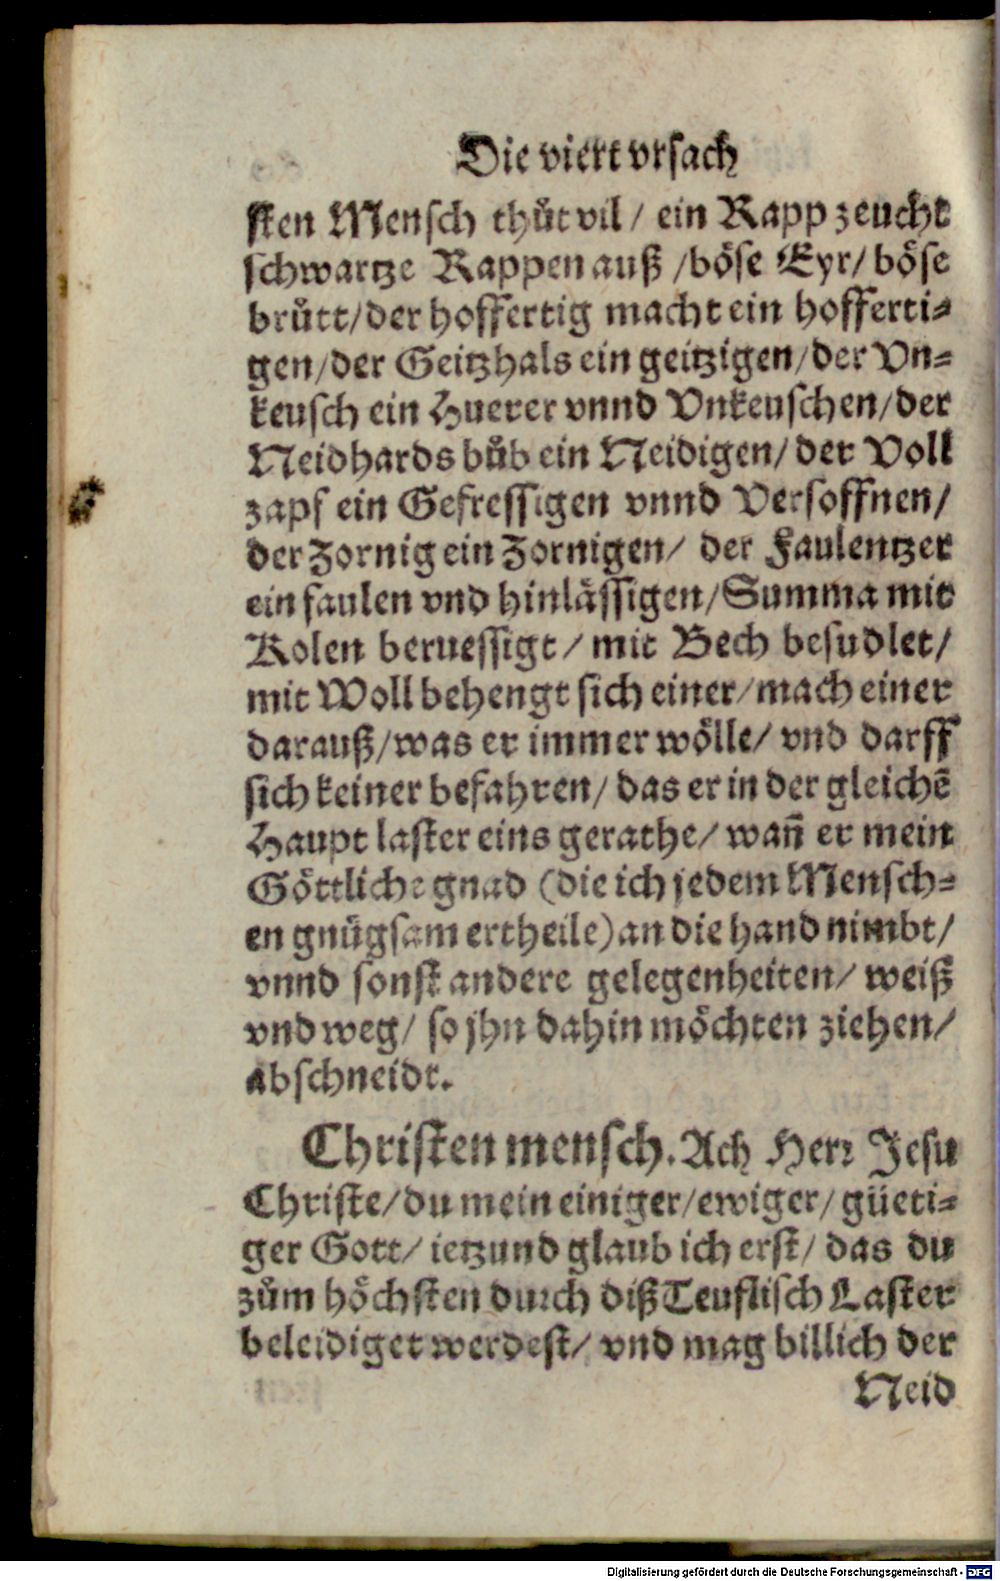 Die viert vrsach
sten Mensch thůt vil / ein Rapp zeucht
schwartze Rappen auß /böse Eyr/ böse
brůtt/der hoffertig macht ein hofferti⸗
gen/der Geitzhals ein geitzigen/der Vn⸗
keusch ein Huerer vnnd Vnkeuschen/der
Neidhards bůb ein Neidigen/ der Voll
zapf ein Gefressigen vnnd Versoffnen/
der Zornig ein Zornigen/ der Faulentzer
ein faulen vnd hinlässigen/Summa mit
Kolen beruessigt / mit Bech besudlet/
mit Woll behengt sich einer/mach einer
darauß/was er immer wölle/ vnd darff
sich keiner befahren/ das er in der gleichē
Haupt laster eins gerathe/ wañ er mein
Göttliche gnad (die ich jedem Mensch⸗
en gnůgsam ertheile) an die hand nimbt/
vnnd sonst andere gelegenheiten/ weiß
vnd weg/ so jhn dahin möchten ziehen/
abschneidt.
Christen mensch. Ach Herr Jesu
Christe/du mein einiger/ewiger/ güeti⸗
ger Gott/ ietzund glaub ich erst/ das du
zům höchsten durch diß Teuflisch Laster
beleidiget werdest/ vnd mag billich der
Neid
Digitalisierung gefördert durch die Deutsche Forschungsgemeinschaft - DFG